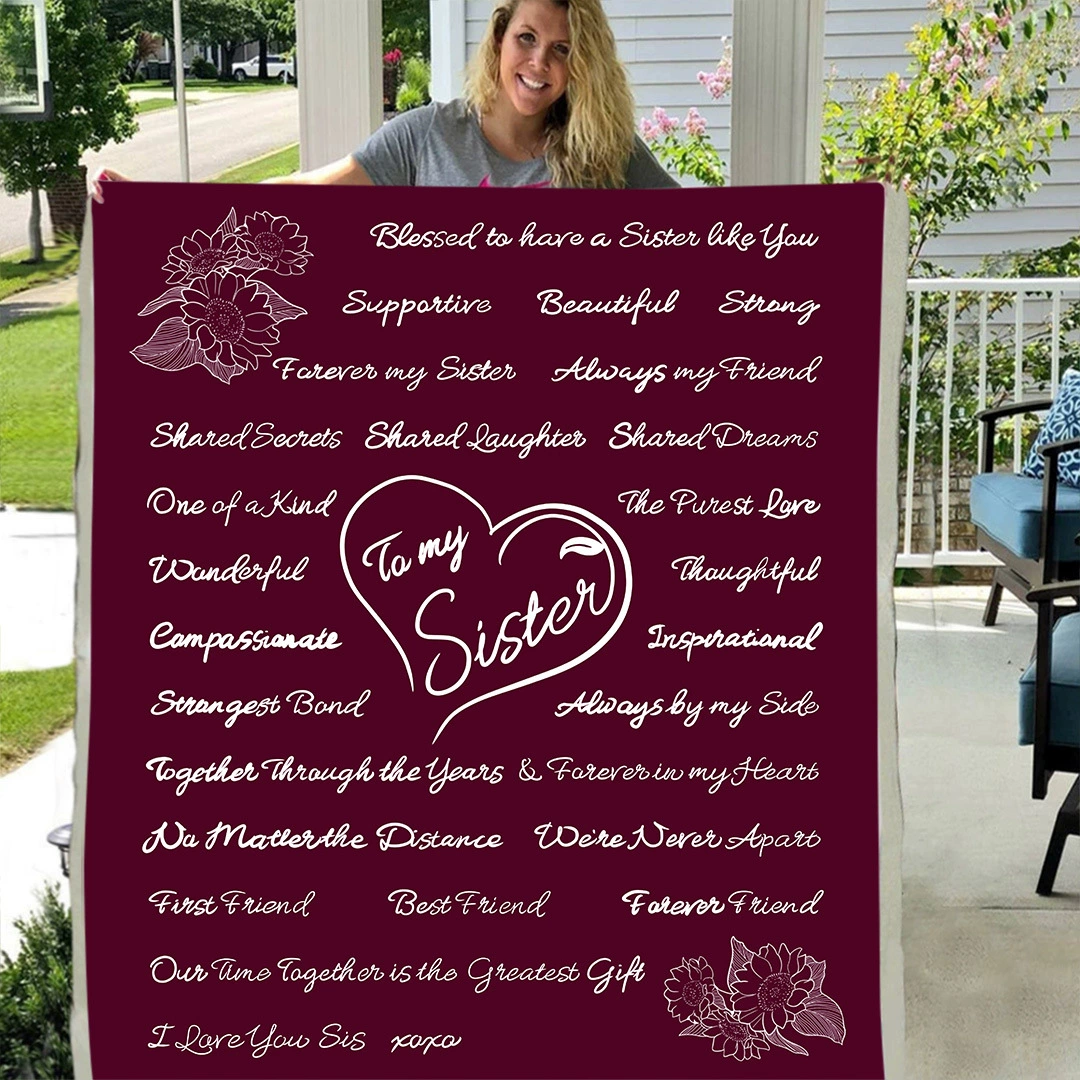 Blessed to have a Sister like You
Supportive Beautiful Strong
Forever my Sister Always my Friend
Shared Secrets Shared Laughter Shared Dreams
One of a Kind The Purest Love
To my
Wonderful Thoughtful
Sister
Compassionate Inspirational
Strongest Bond Always by my Side
Together Through the Years & Forever in my Heart
No Matter the Distance We're Never Apart
First Friend Best Friend Forever Friend
Our Time Together is the Greatest Gift
I Love You Sis xoxo